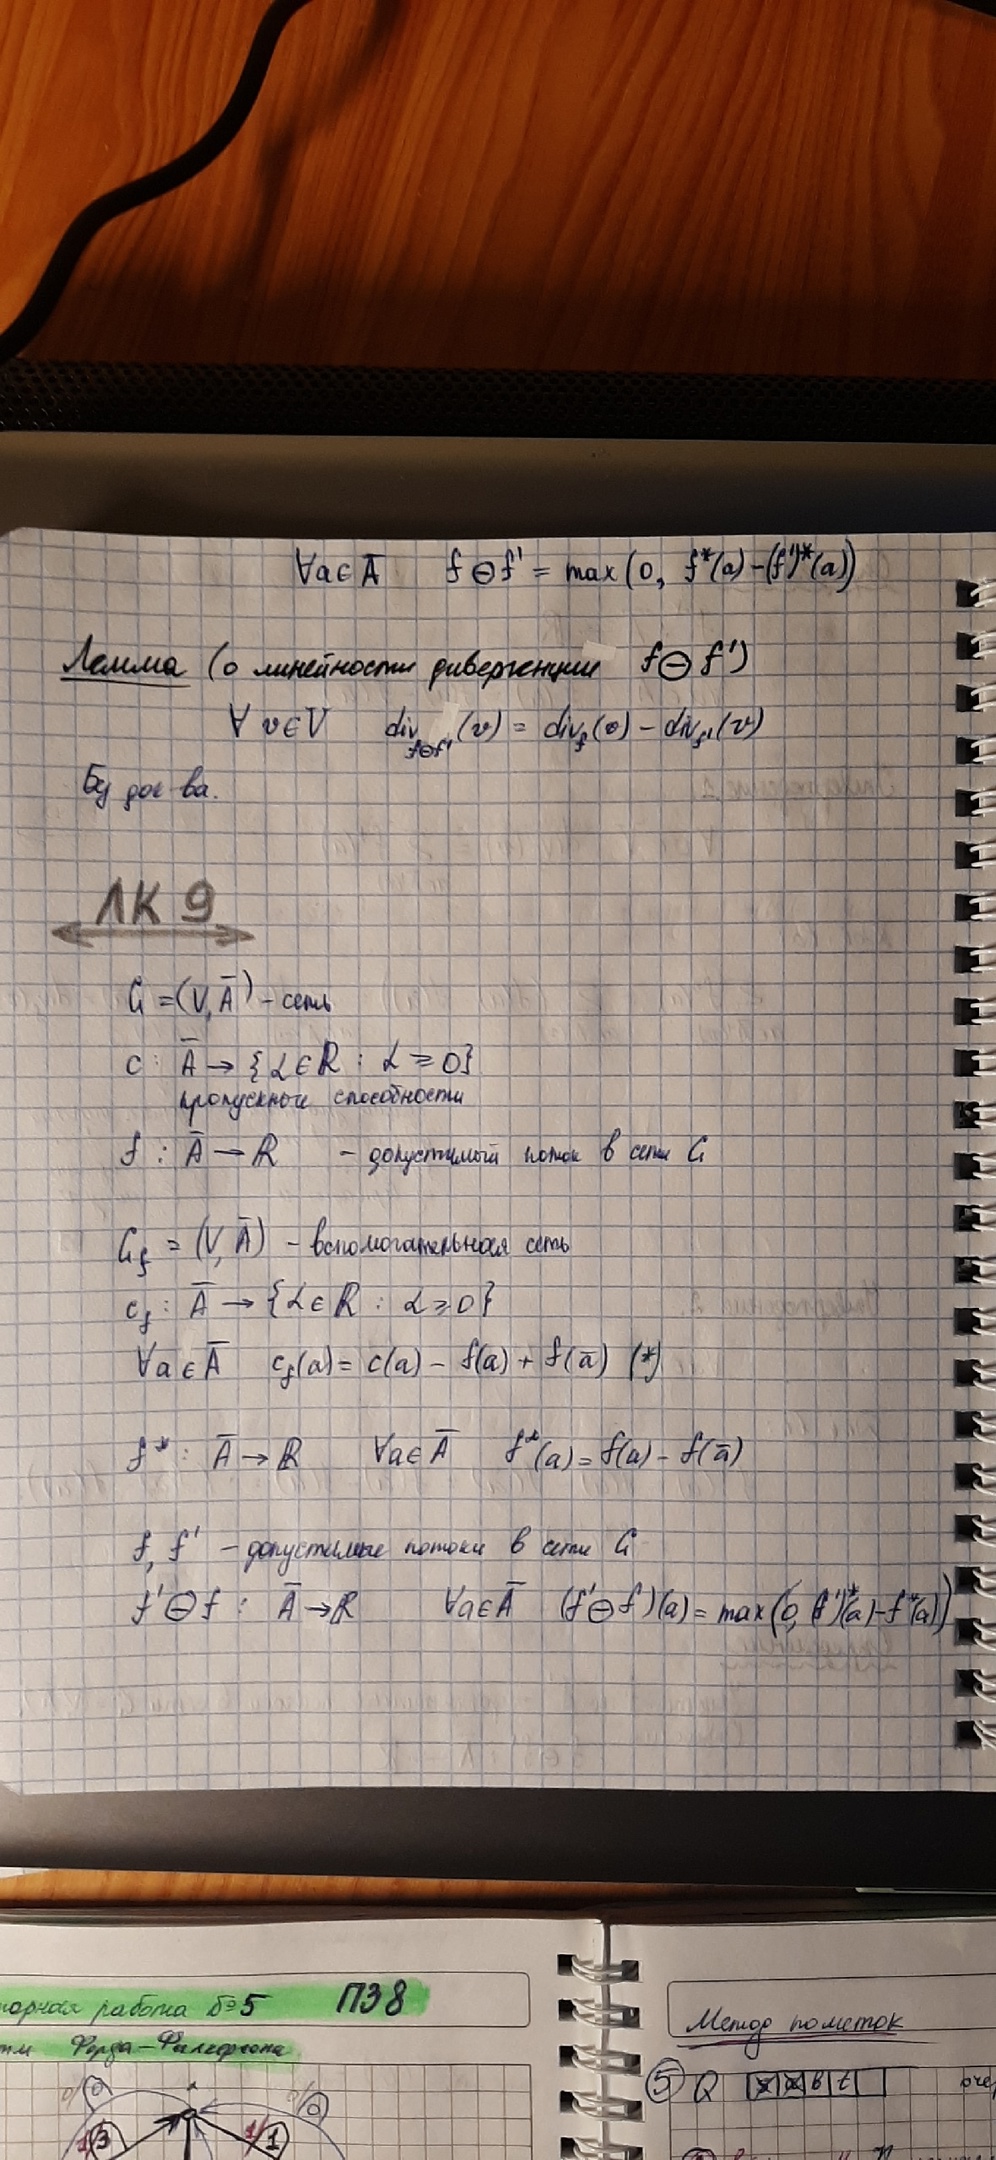 ∀a∈Ā f⊖f' = max(0, f*(a)-(f')*(a))
Лемма (о линейности дивергенции f⊖f')
∀ v∈V div_{f⊖f'}(v) = div_f(v) - div_{f'}(v)
Бу док-ва.
ЛК 9
G = (V, Ā) - сеть
c : Ā → {α∈ℝ : α ≥ 0}
пропускные способности
f : Ā → ℝ - допустимый поток в сети G
G_f = (V, Ā) - вспомогательная сеть
c_f : Ā → {α∈ℝ : α ≥ 0}
∀a∈Ā c_f(a) = c(a) - f(a) + f(ā) (*)
f* : Ā → ℝ ∀a∈Ā f*(a) = f(a) - f(ā)
f, f' - допустимые потоки в сети G
f'⊖f : Ā → ℝ ∀a∈Ā (f'⊖f)(a) = max(0, (f')*(a) - f*(a))
работа №5 ПЗ 8
Форда-Фалкерсона
3 1
Метод пометок
⑤ Q в t